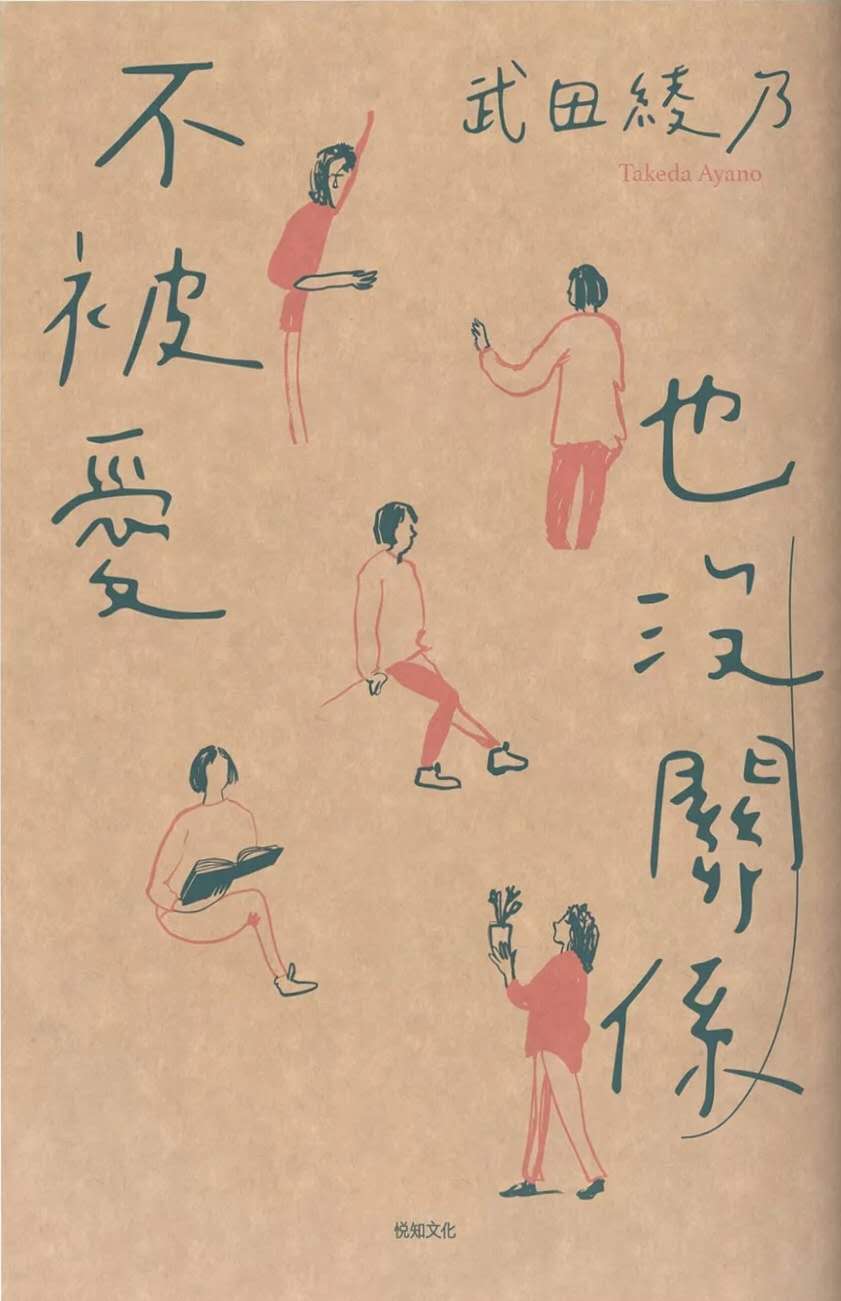 武田綾乃
Takeda Ayano
不被愛
也沒關係
悅知文化